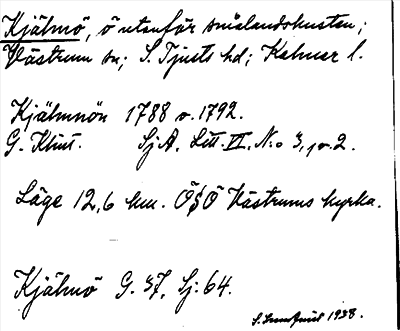 Kjälmö, ö utanför smålandskusten;
Västrum sn; S. Tjusts hd; Kalmar l.
Kjälmön 1788 o. 1792.
G. Klint. SjA, Litt. VI, N:o 3, 1 o. 2.
Läge 12,6 km. ÖSÖ Västrums kyrka.
Kjälmö G. 37, Sj: 64.
S. 1938.